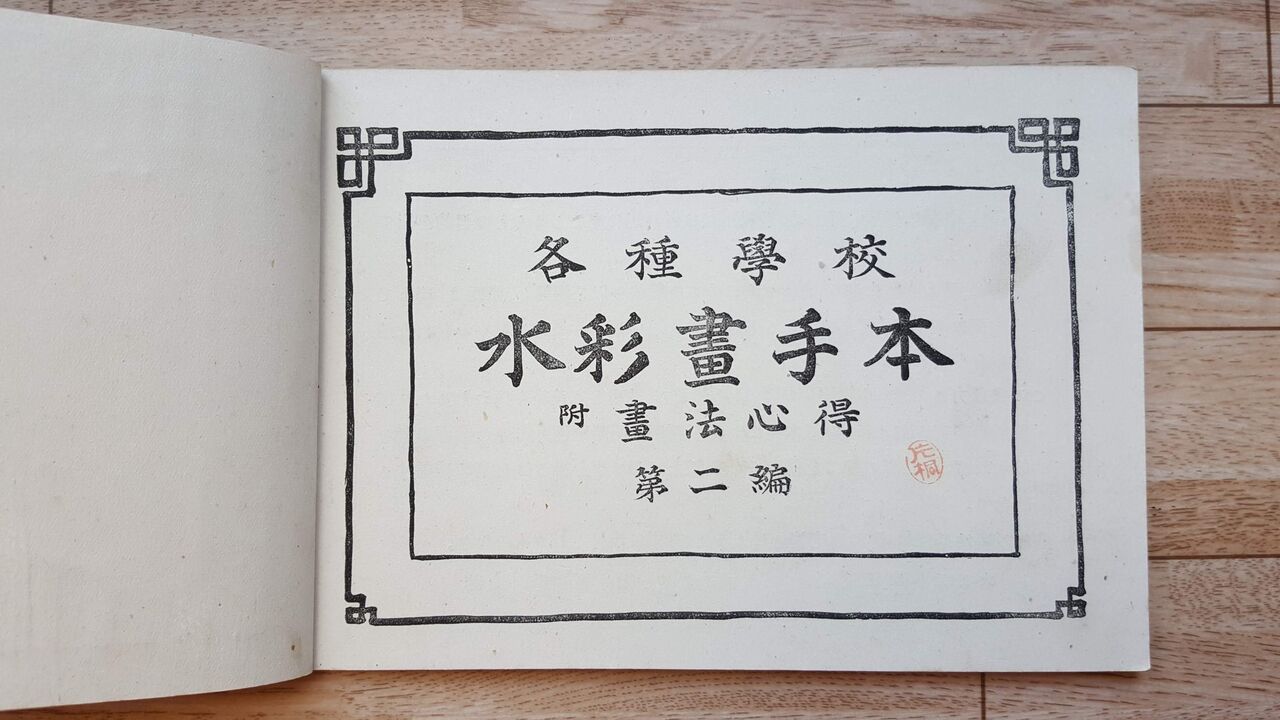 各種學校
水彩畫手本
附 畫法心得
第二編
片桐